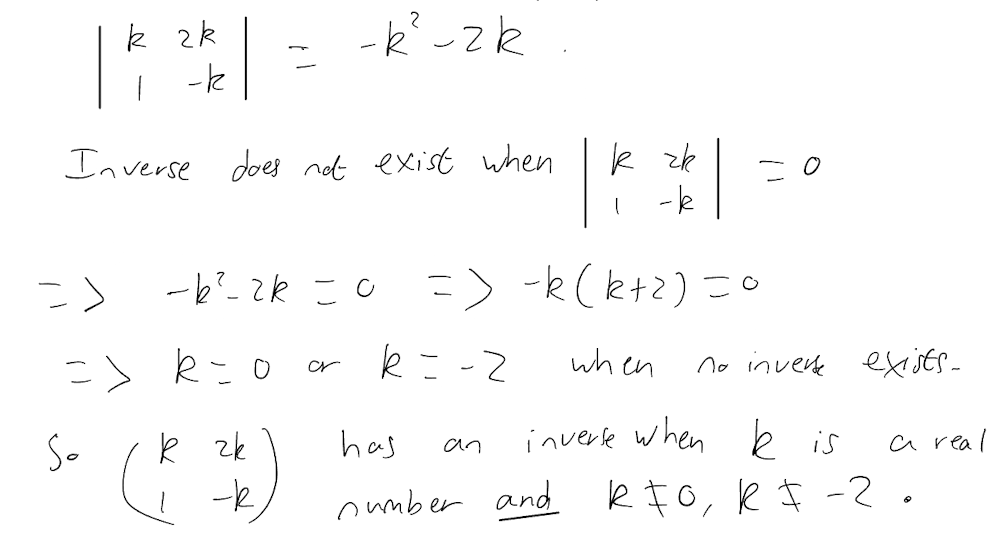 | k 2k | = -k² - 2k .
| 1 -k |
Inverse does not exist when | k 2k | = 0
| 1 -k |
=> -k² - 2k = 0 => -k(k+2) = 0
=> k = 0 or k = -2 when no inverse exists.
So ( k 2k ) has an inverse when k is a real
( 1 -k ) number and k ≠ 0, k ≠ -2 .